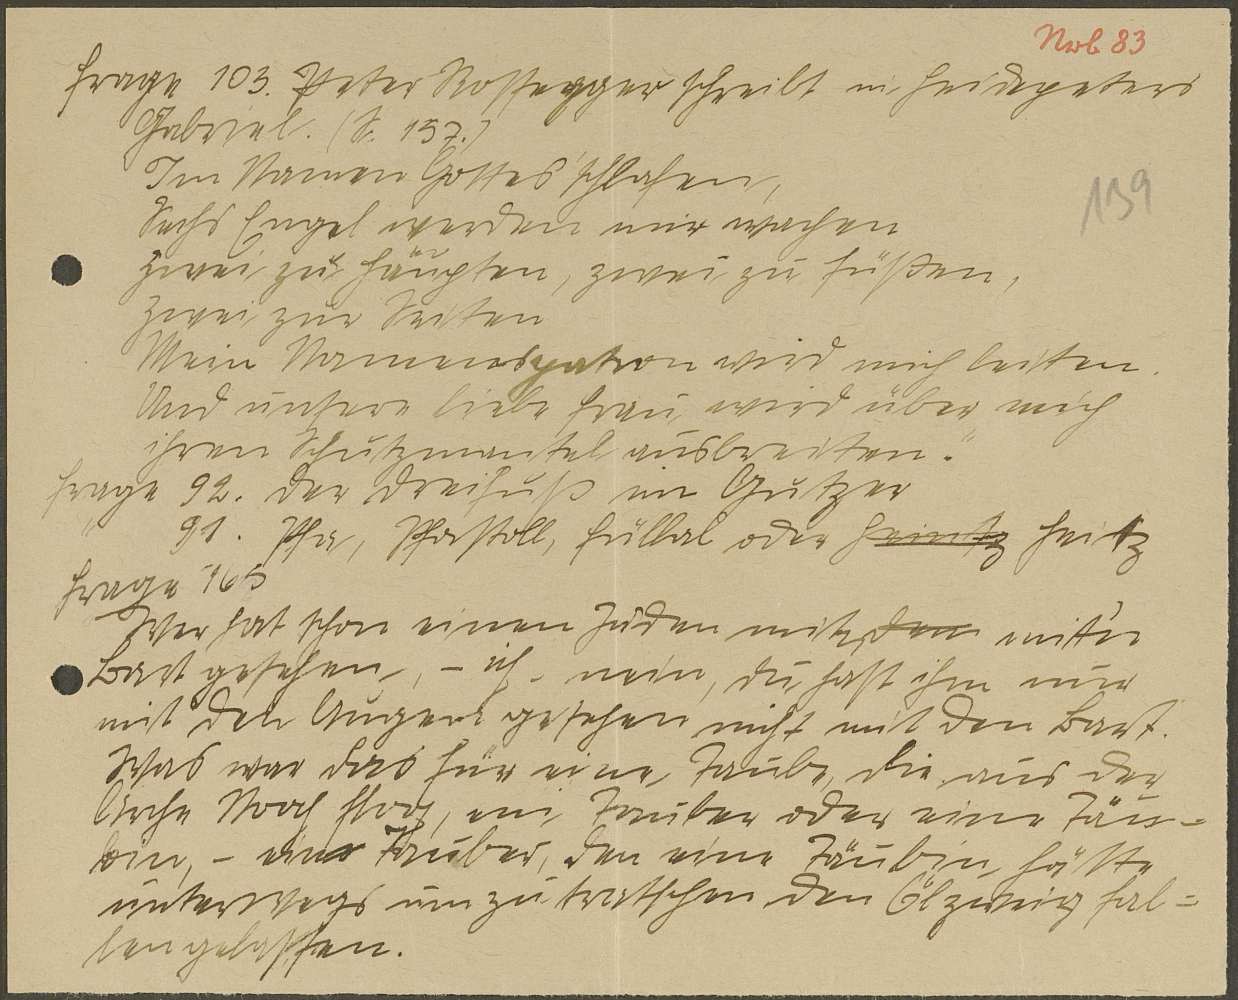 Nob 83
Frage 103. Peter Rossegger schreibt in Heidepeters
Gabriel. (S. 157.)
Im Namen Gottes schlafen,
Sechs Engel werden mir wachen
Zwei zu Häupten, zwei zu Füßen,
Zwei zur Seiten
Mein Namenspatron wird mich leiten.
Und unsere liebe Frau wird über mich
ihren Schutzmantel ausbreiten."
139
Frage 92. der Dreifuß im Gutzer
" 91. Pfa, Pfostoll, Füllal oder Heitz
Frage 165
Wer hat schon einen Juden mit'n
Bart gesehen, - ich - nein, du hast ihn nur
mit den Augen gesehen nicht mit den Bart.
Was war das für eine Taube, die aus der
Arche Noah flog, ein Tauber oder eine Täu=
bin, - ein Tauber, den eine Täubin hätte
unterwegs um zu tratschen den Ölzweig fal=
len gelassen.